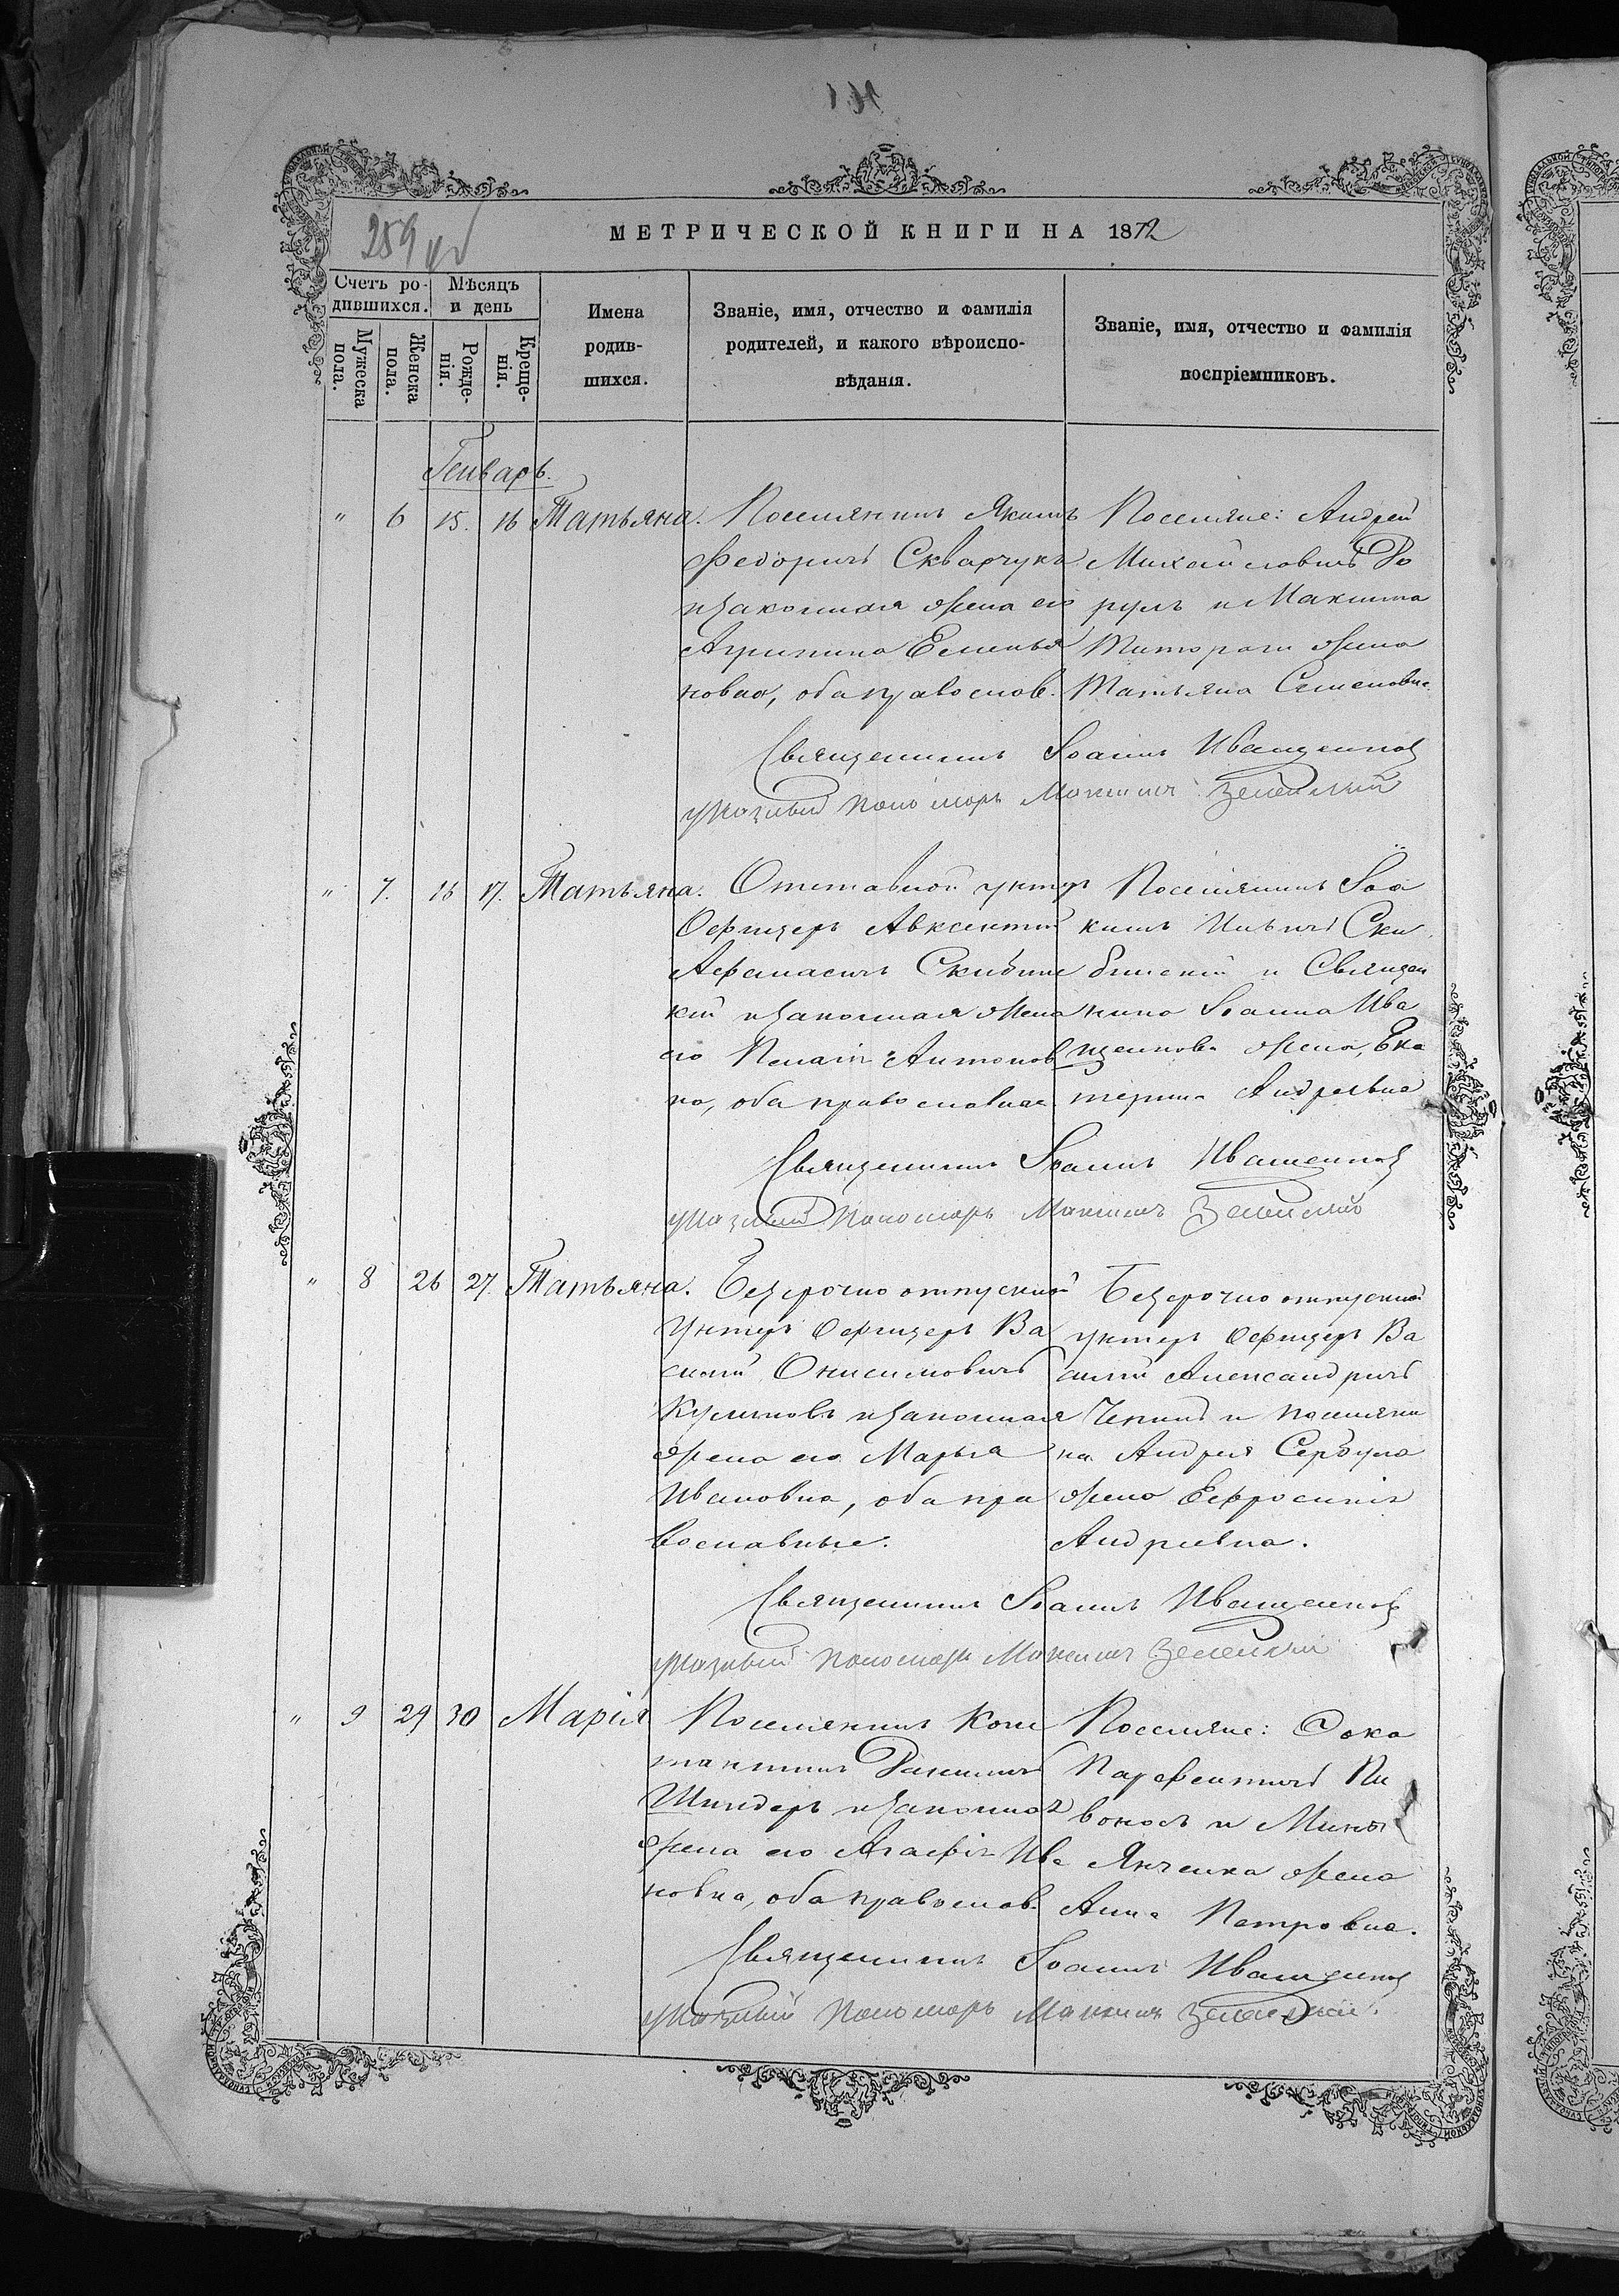 259 об
МЕТРИЧЕСКОЙ КНИГИ НА 1872
Счетъ ро-
дившихся.
Мужеска
пола.
Женска
пола.
Мѣсяцъ
и день
Рожде-
нія.
Креще-
нія.
Имена
родив-
шихся.
Званіе, имя, отчество и фамилія
родителей, и какого вѣроиспо-
вѣданія.
Званіе, имя, отчество и фамилія
воспріемниковъ.
Генварь.
" 6 15. 16 Татьяна.
Поселянинъ Якимъ
Федоричъ Скварчукъ
и законная жена его
Агрипина Емелья
новна, оба православ.
Поселяне: Андрей
Михайловичъ
и Максима
жена
Татьяна Семеновна.
Священникъ Іоаннъ Иващенковъ
указный пономарь Максимъ Зеленскій
" 7. 16 17. Татьяна.
Отставной унтеръ
Офицеръ Авксентій
Афанасичъ Скибинс
кій и законная жена
его Пелагія Антонов
на, оба православные
Поселянинъ Іоа
кимъ Ильичъ Ски
бинскій и Священ
ника Іоанна Ива
щенкова жена, Ека
терина Андреевна
Священникъ Іоаннъ Иващенковъ
указный пономарь Максимъ Зеленскій
" 8 26 27. Татьяна.
Безсрочно отпускной
Унтеръ Офицеръ Ва
силій Онисимовичъ
и законная
жена его Марья
Ивановна, оба пра
вославные.
Безсрочно отпускной
унтеръ Офицеръ Ва
силій Александричъ
и поселяни
на Андрея Сербула
жена Ефросинія
Андреевна.
Священникъ Іоаннъ Иващенковъ
указный пономарь Максимъ Зеленскій
" 9 29 30 Марія
Поселянинъ Конс
тантинъ
Шиндеръ и законная
жена его Агафія Ива
новна, оба православ.
Поселяне: Фока
Парфентичъ Пи
воносъ и Мины
Янченка жена
Анна Петровна.
Священникъ Іоаннъ Иващенковъ
указный пономарь Максимъ Зеленскій.